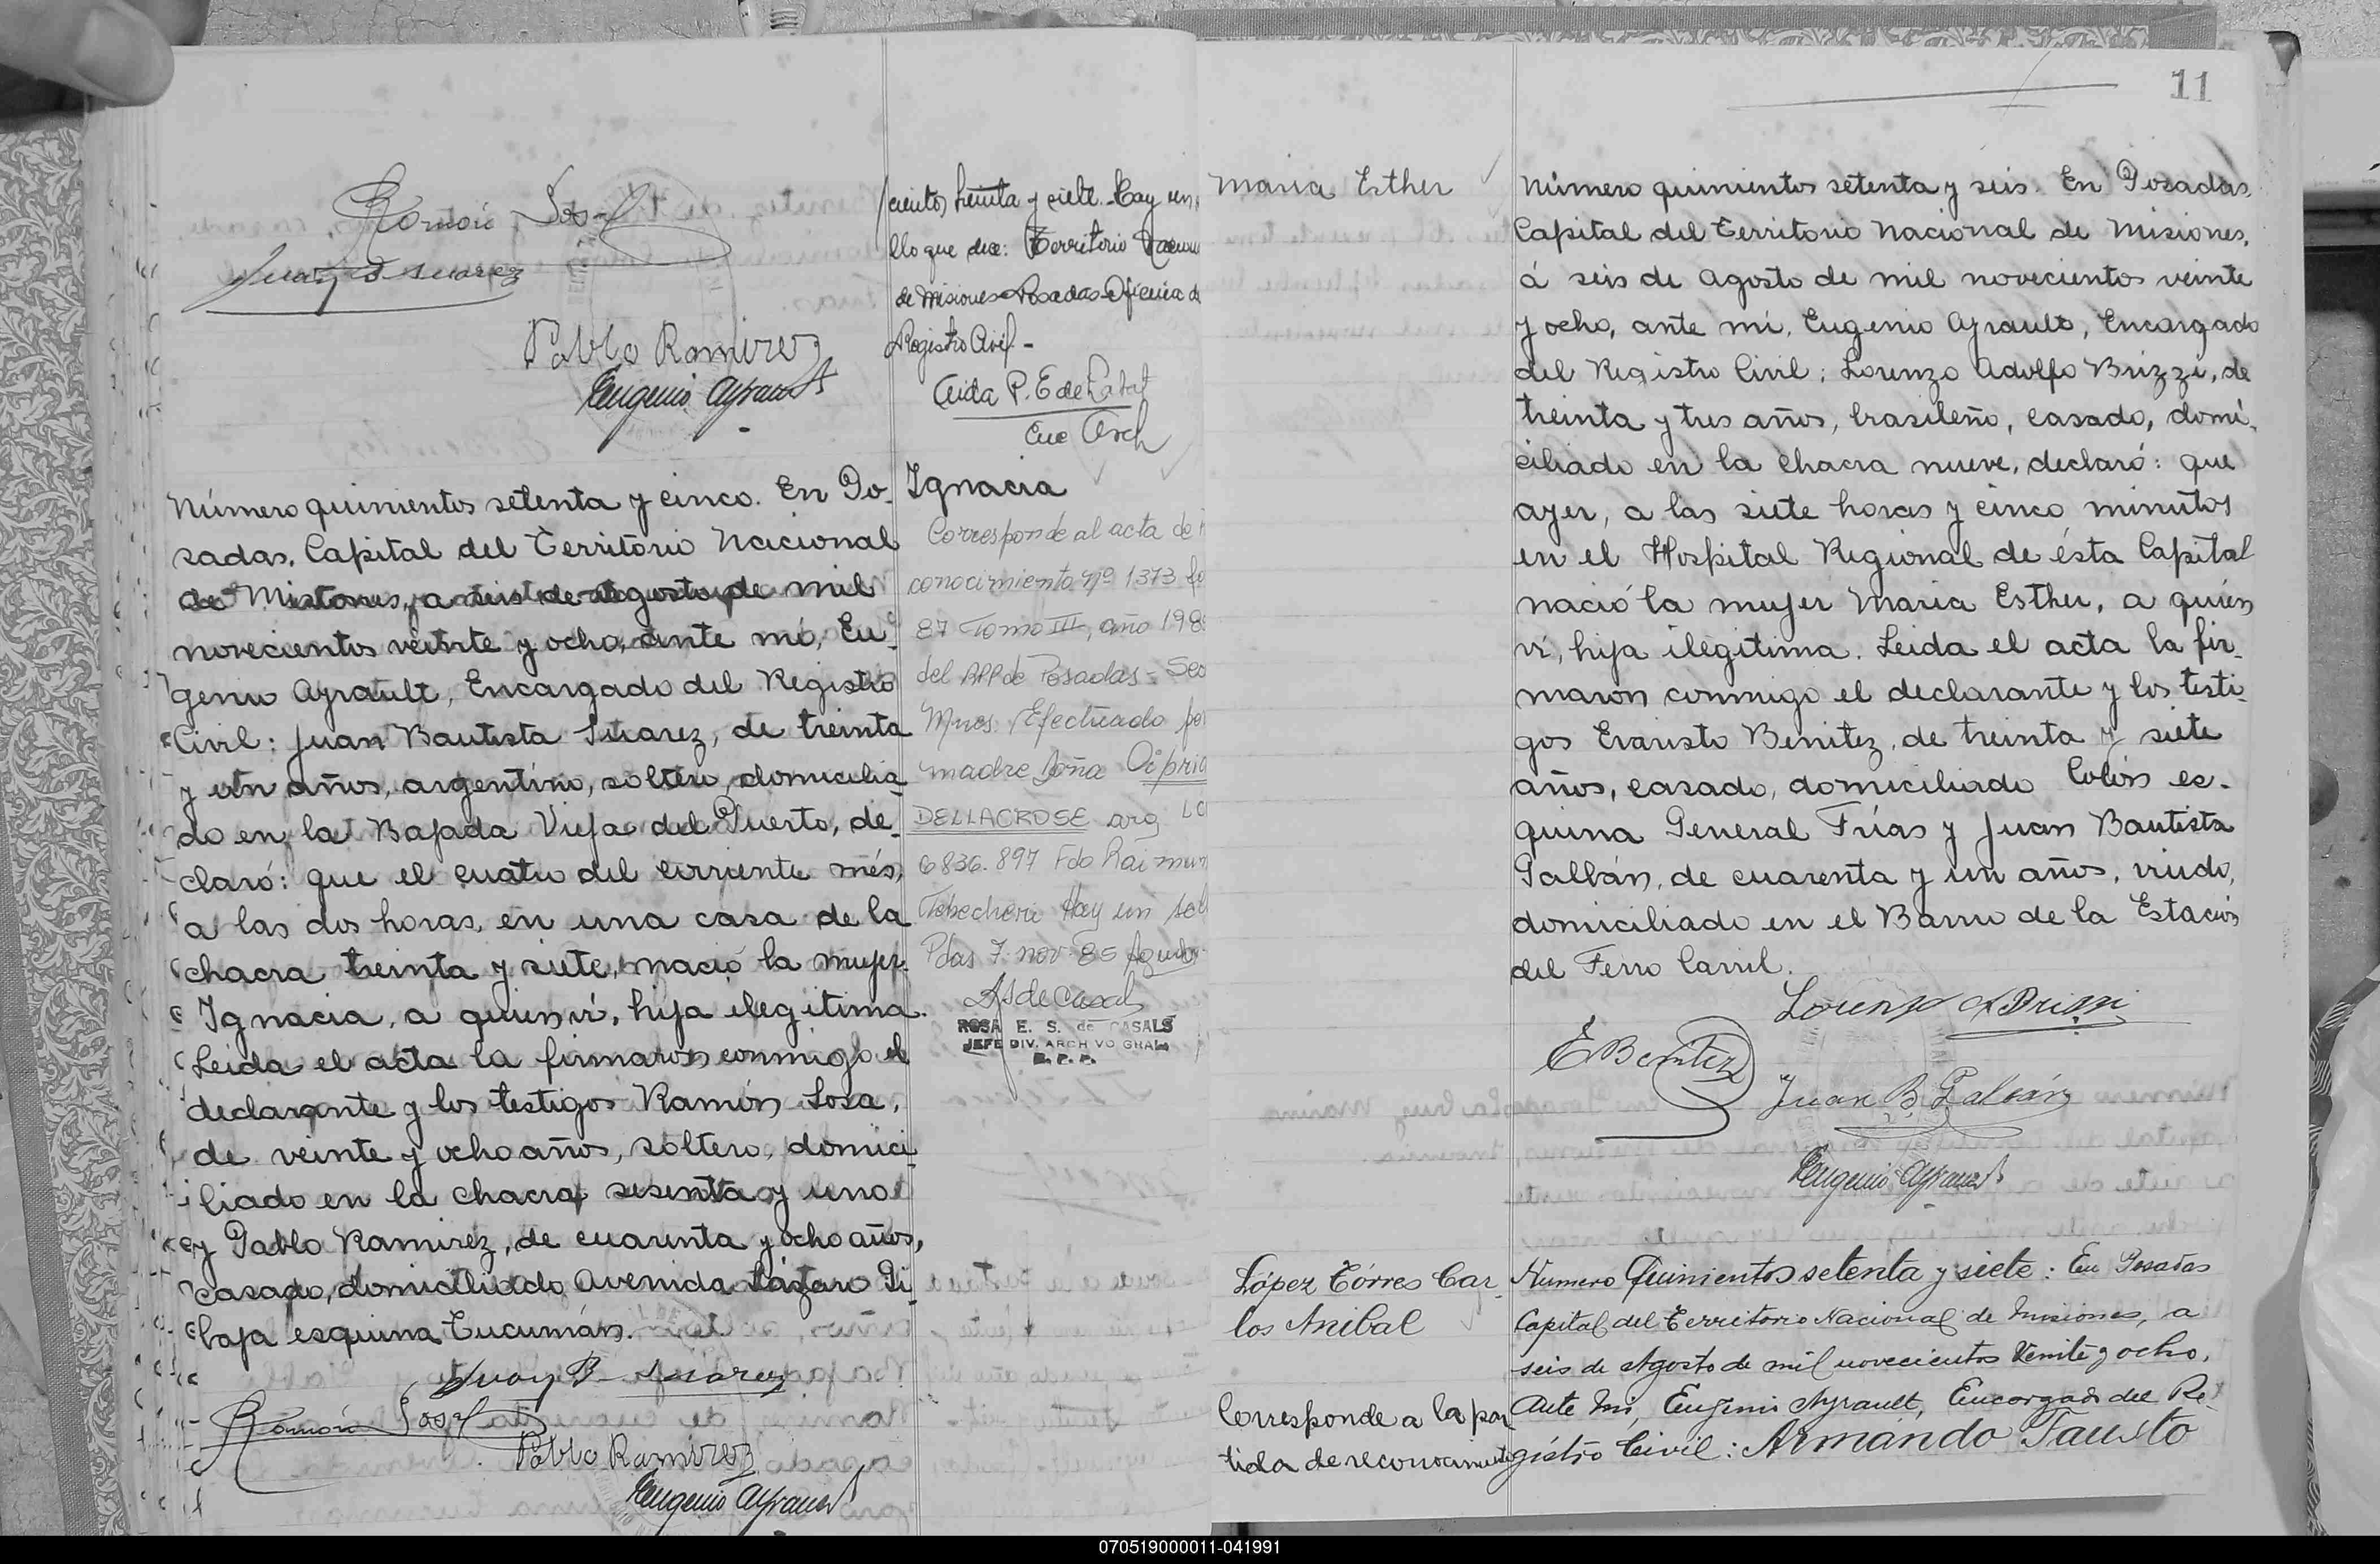 Ramón Sosa
Juan B Suarez
Pablo Ramirez
Eugenio Ayrault
cientos treinta y siete. Hay un
llo que dice: Territorio Nacion
de Misiones Posadas Oficina d
Registro Civil -
Número quinientos setenta y cinco. En Po-
sadas, Capital del Territorio Nacional
de Misiones, a seis de Agosto de mil
novecientos veinte y ocho, ante mí, Eu-
genio Ayrault, Encargado del Registro
Civil: Juan Bautista Suarez, de treinta
y un años, argentino, soltero, domicilia-
do en la Bajada Vieja del Puerto, de-
claró: que el cuatro del corriente més,
a las dos horas, en una casa de la
chacra treinta y siete, nació la mujer
Ignacia, a quien ví, hija ilegitima.
Leida el acta la firmaron conmigo el
declarante y los testigos Ramón Sosa,
de veinte y ocho años, soltero, domici-
liado en la chacra sesenta y uno
y Pablo Ramirez, de cuarenta y ocho años,
casado, domiciliado Avenida Lázaro Gi-
baja esquina Tucumán.
Juan B Suarez
Ramón Sosa
Pablo Ramirez
Eugenio Ayrault
Ignacia
Corresponde al acta de r
conocimiento nº 1373 fo
87 Tomo III, año 198
del RPP de Posadas - Sec
Mnes. Efectuado po
madre Doña Cipria
DELLACROSE arg LC
6836.897 Fdo Raimun
Hay un sel
Pdas 7 nov 85
ROSA E. S. de CASALS
JEFE DIV. ARCHIVO GRAL
R. P. P.
11
Maria Esther
Número quinientos setenta y seis. En Posadas,
Capital del Territorio Nacional de Misiones,
á seis de Agosto de mil novecientos veinte
y ocho, ante mí, Eugenio Ayrault, Encargado
del Registro Civil: Lorenzo Adolfo Brizzi, de
treinta y tres años, brasileño, casado, domi-
ciliado en la chacra nueve, declaró: que
ayer, a las siete horas y cinco minutos
en el Hospital Regional de ésta Capital
nació la mujer Maria Esther, a quien
ví, hija ilegitima. Leida el acta la fir-
maron conmigo el declarante y los testi-
gos Evaristo Benitez, de treinta y siete
años, casado, domiciliado Colón es-
quina General Frías y Juan Bautista
Galbán, de cuarenta y un años, viudo,
domiciliado en el Barrio de la Estación
del Ferro Carril.
Lorenzo A Brizzi
E Benitez
Juan B Galván
Eugenio Ayrault
López Tórres Car-
los Anibal
Corresponde a la par
tida de reconocimiento
Numero Quinientos setenta y siete: En Posadas
Capital del Territorio Nacional de Misiones, a
seis de Agosto de mil novecientos Veinte y ocho,
Ante Mi, Eugenio Ayrault, Encargado del Re-
gistro Civil: Armando Fausto
070519000011-041991